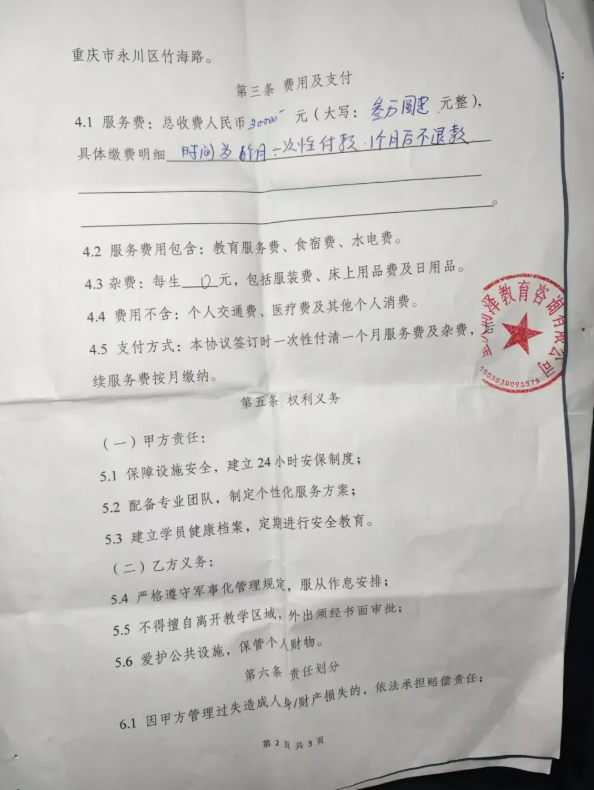 重庆市永川区竹海路。
第三条 费用及支付
4.1 服务费：总收费人民币30000元（大写：叁万圆 元整），
具体缴费明细 时间为6个月一次性付款.1个月后不退款
。
4.2 服务费用包含：教育服务费、食宿费、水电费。
4.3 杂费：每生 0 元，包括服装费、床上用品费及日用品。
4.4 费用不含：个人交通费、医疗费及其他个人消费。
4.5 支付方式：本协议签订时一次性付清一个月服务费及杂费，后
续服务费按月缴纳。
泽教育咨询有限公司
5003839095575
第五条 权利义务
（一）甲方责任：
5.1 保障设施安全，建立24小时安保制度；
5.2 配备专业团队，制定个性化服务方案；
5.3 建立学员健康档案，定期进行安全教育。
（二）乙方义务：
5.4 严格遵守军事化管理规定，服从作息安排；
5.5 不得擅自离开教学区域，外出须经书面审批；
5.6 爱护公共设施，保管个人财物。
第六条 责任划分
6.1 因甲方管理过失造成人身/财产损失的，依法承担赔偿责任；
第 2 页 共 3 页